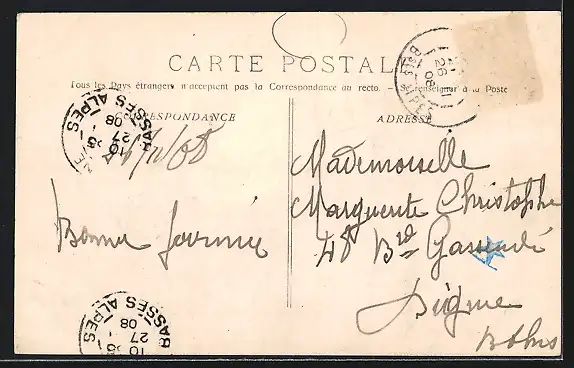 CARTE POSTALE
Tous les Pays étrangers n'acceptent pas la Correspondance au recto. - Se renseigner à la Poste
CORRESPONDANCE
ADRESSE
Bonne journée
Mademoiselle
Marguerite Christophe
48 Bd Gassendi
Digne
B Alpes
BASSES ALPES
27
08
26 11
08
BASSES ALPES
10
27
08